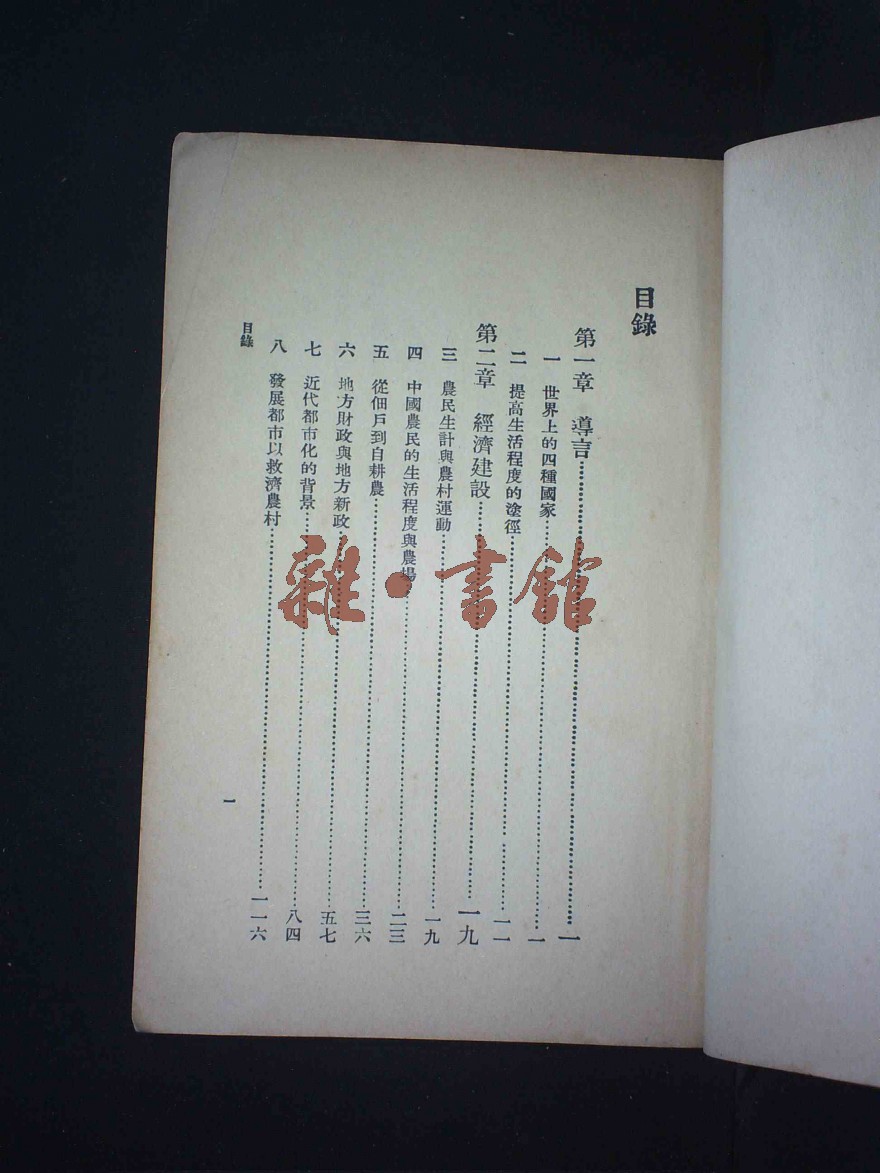 目錄
第一章 導言……一
一 世界上的四種國家……一
二 提高生活程度的塗徑……一一
第二章 經濟建設……一九
三 農民生計與農村運動……一九
四 中國農民的生活程度與農場……二三
五 從佃戶到自耕農……三六
六 地方財政與地方新政……五七
七 近代都市化的背景……八四
八 發展都市以救濟農村……一一六
目錄
一
雜·書館